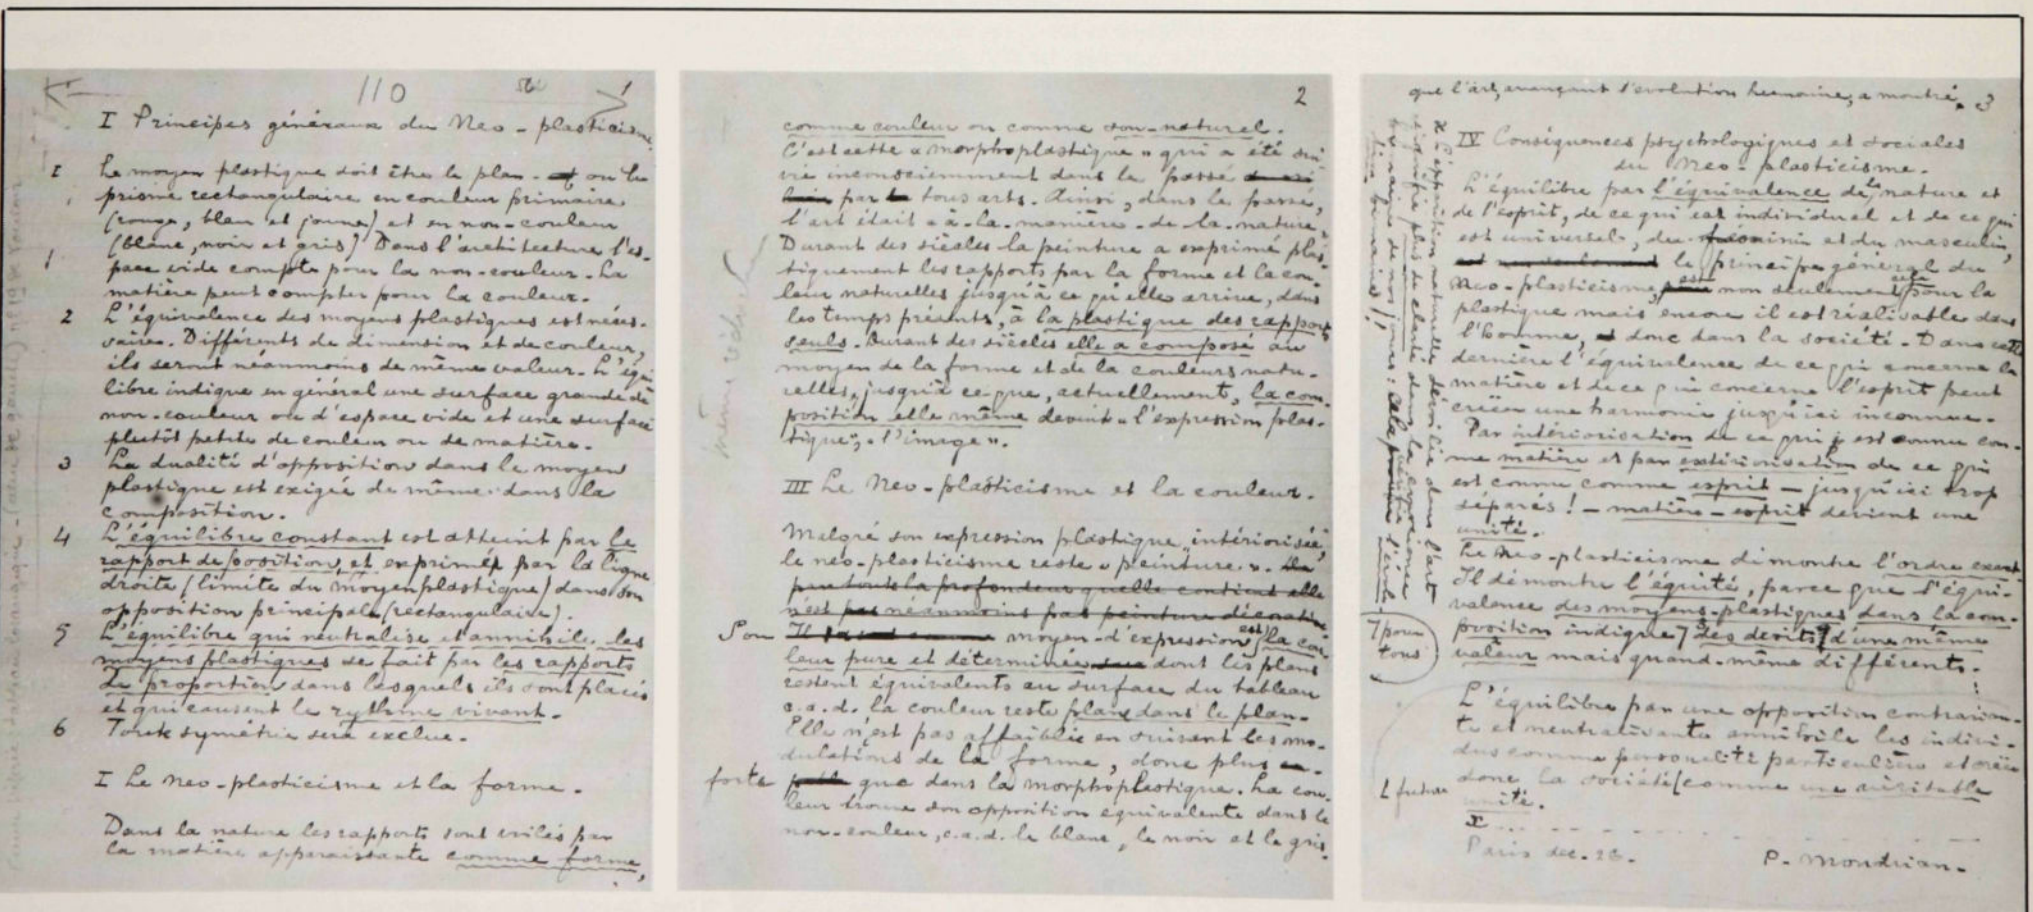 110
1
I Principes généraux du Neo-plasticisme
1 Le moyen plastique doit être le plan ou le
prisme rectangulaire en couleur primaire
(rouge, bleu et jaune) et en non-couleur
(blanc, noir et gris). Dans l'architecture l'es-
pace vide compte pour la non-couleur. La
matière peut compter pour la couleur.
2 L'équivalence des moyens plastiques est néces-
saire. Différents de dimension et de couleur,
ils seront néanmoins de même valeur. L'équi-
libre indique en général une surface grande de
non-couleur ou d'espace vide et une surface
plutôt petite de couleur ou de matière.
3 La dualité d'opposition dans le moyen
plastique est exigée de même dans la
composition.
4 L'équilibre constant est atteint par le
rapport de position, et exprimé par la ligne
droite (limite du moyen plastique) dans son
opposition principale (rectangulaire).
5 L'équilibre qui neutralise et annihile les
moyens plastiques se fait par les rapports
de proportion dans lesquels ils sont placés
et qui causent le rythme vivant.
6 Toute symétrie sera exclue.
I Le neo-plasticisme et la forme.
Dans la nature les rapports sont voilés par
la matière apparaissante comme forme,
2
comme couleur ou comme son-naturel.
C'est cette « morphoplastique » qui a été sui-
vie inconsciemment dans le passé
par tous arts. Ainsi, dans le passé,
l'art était « à-la-manière-de-la-nature ».
Durant des siècles la peinture a exprimé plas-
tiquement les rapports par la forme et la cou-
leur naturelles jusqu'à ce qu'elle arrive, dans
les temps présents, à la plastique des rapports
seuls. Durant des siècles elle a composé au
moyen de la forme et de la couleurs natu-
relles, jusqu'à ce que, actuellement, la com-
position elle même devint « l'expression plas-
tique », « l'image ».
III Le Neo-plasticisme et la couleur.
Malgré son expression plastique „intériorisée",
le néo-plasticisme reste « peinture ».
par toute la profondeur quelle contient elle
n'est pas néanmoins pas peinture décorative
Son moyen-d'expression est la cou-
leur pure et déterminée dont les plans
restent équivalents au surface du tableau
c.a.d. la couleur reste plane dans le plan.
Elle n'est pas affaiblie en suivant les mo-
dulations de la forme, donc plus
forte que dans la morphoplastique. La cou-
leur trouve son opposition equivalente dans la
non-couleur, c.a.d. le blanc, le noir et le gris.
que l'art, avançant l'evolution humaine, a montré. 3
IV Conséquences psychologiques et sociales
du Neo-plasticisme.
L'équilibre par l'équivalence de la nature et
de l'esprit, de ce qui est individuel et de ce qui
est universel, du féminin et du masculin,
le principe général du
Neo-plasticisme, est non seulement pour la
plastique mais encore il est réalisable dans
l'homme, donc dans la société. Dans cette
dernière l'équivalence de ce qui concerne la
matière et de ce qui concerne l'esprit peut
créer une harmonie jusqu'ici inconnue.
Par intériorisation de ce qui est connu com-
me matière et par extériorisation de ce qui
est connu comme esprit - jusqu'ici trop
séparés! - matière-esprit devient une
unité.
Le Neo-plasticisme démontre l'ordre exact.
Il démontre l'équité, parce que l'équi-
valence des moyens-plastiques dans la com-
position indique pour tous des droits d'une même
valeur mais quand-même différents.
L'équilibre par une opposition contrarian-
te et neutralisante annihile les indivi-
dus comme personalité particulière et crée
donc la société future comme une véritable
unité.
Paris dec. 26.
P. Mondrian.